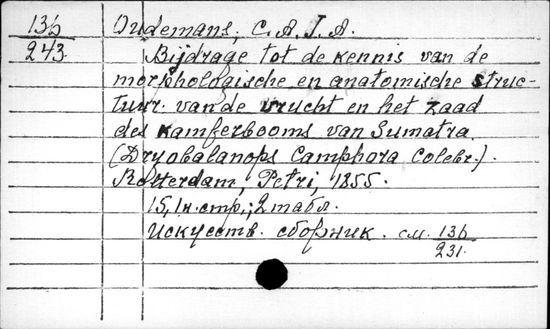 136 Oudemans, C. A. J. A.
243. Bijdrage tot de kennis van de
morphologische en anatomische struc-
tuur van de vrucht en het zaad
des Kamferbooms van Sumatra
(Dryobalanops Camphora Colebr.).
Rotterdam, Petri, 1855.
15, 1 н. стр.; 2 табл.
Искусств. сборник. см. 136
231.